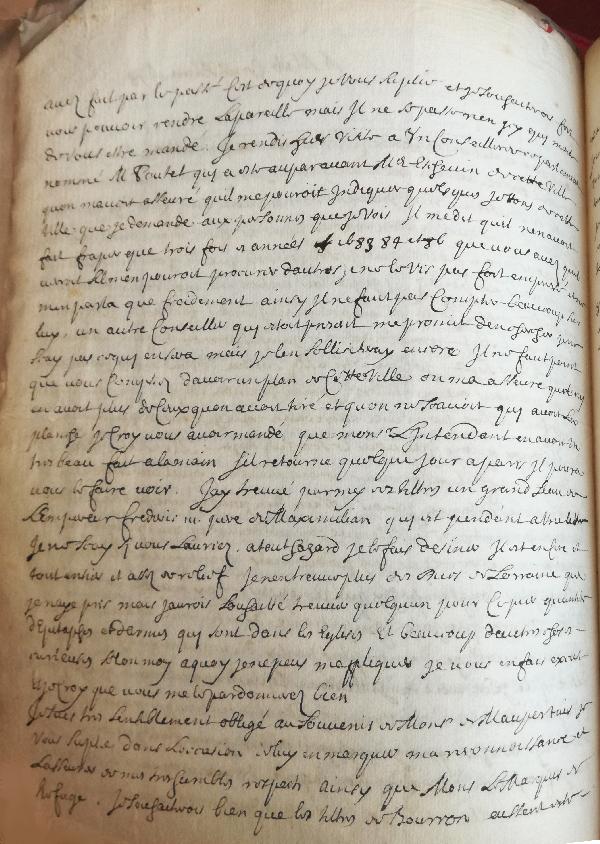 avez fait par le passé C'est de quoy je vous suplie et je souhaiterois fort
vous pouvoir rendre la pareille mais Il ne se passe rien icy qui merite
de vous estre mandé. Je rendis hier visite a Un Conseiller de ce parlement
nommé M Poutet qui a esté auparavant Me Eschevin de cette Ville
quon mavoit asseuré quil me pouroit Indiquer quelques Jettons de cette
Ville que je demande aux personnes que je vois Il me dit quil nen avoit
fait fraper que trois fois es années 1683 84 et 86 que vous avez
men pouroit procurer dautres je ne le vis pas fort empressé
men parla que froidement ainsy Il ne faut pas Compter beaucoup sur
luy, un autre Conseiller qui estoit present me promit den chercher je ne
scay pas ce qui en sera mais je len solliciteray encore Il ne faut point
que vous Comptiez davoir un plan de Cette Ville on ma asseuré quil ny
en avoit plus de Ceux quon en avoit tiré et quon ne scavoit qui avoit les
planches je Croy vous avoir mandé que monsr L'Intendant en avoit un
tres beau fait a la main Sil retourne quelque Jour a paris Il poura
vous le faire voir. Jay treuvé parmy des tiltres un grand sceau de
L'empereur frederic III. pere de Maximilian qui est pendant a une lettre
Je ne scay si vous L'auriez. a tout hazard je le fais desiner Il est encor
tout entier et assez de relief Je nen treuve plus des Ducs de Lorraine que
je naye pris mais jaurois souhaité treuver quelquun pour Copier quantité
d'Epitaphes et darmes qui sont dans les Eglises Et beaucoup dautres choses
curieuses selon moy a quoy je ne peus mappliquer Je vous en fais excuse
Et je croy que vous me le pardonnerez bien
Je suis tres sensiblement obligé au souvenir de Mons de Maupertuis je
vous suplie dans L'occasion de luy en marquer ma reconnoissance et
L'asseurer de mes tres humbles respects ainsy que Mons Le Marquis de
Refuge. Je souhaiterois bien que les tiltres de Bourron eussent esté